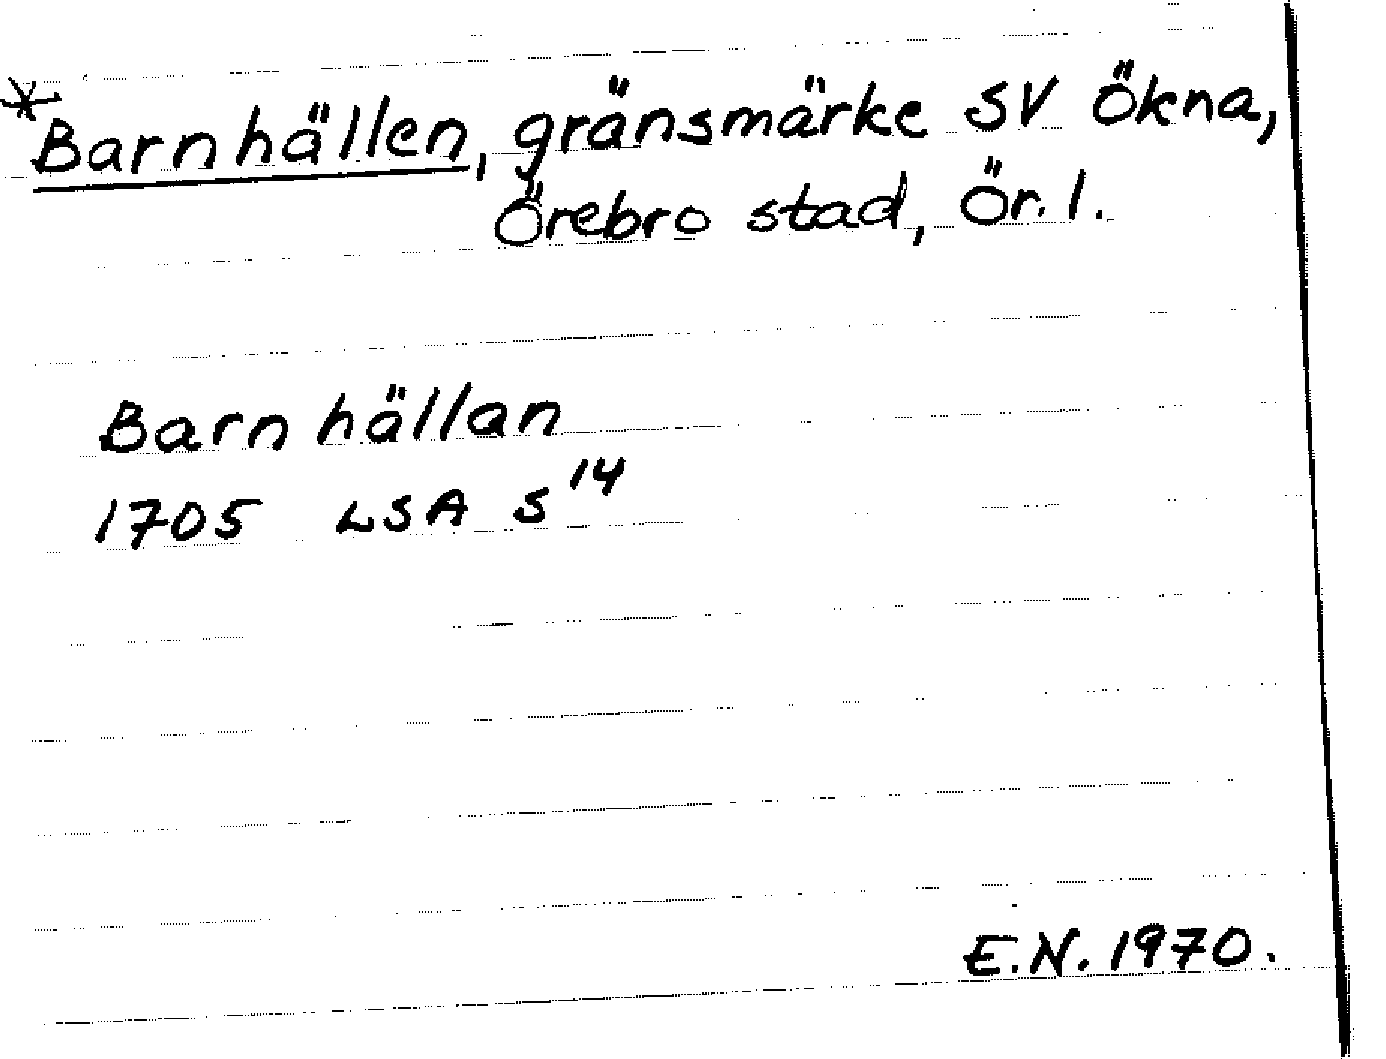 *Barnhällen, gränsmärke SV Ökna,
Örebro stad, Ör. l.
Barnhällan
1705 LSA S¹⁴
E.N. 1970.